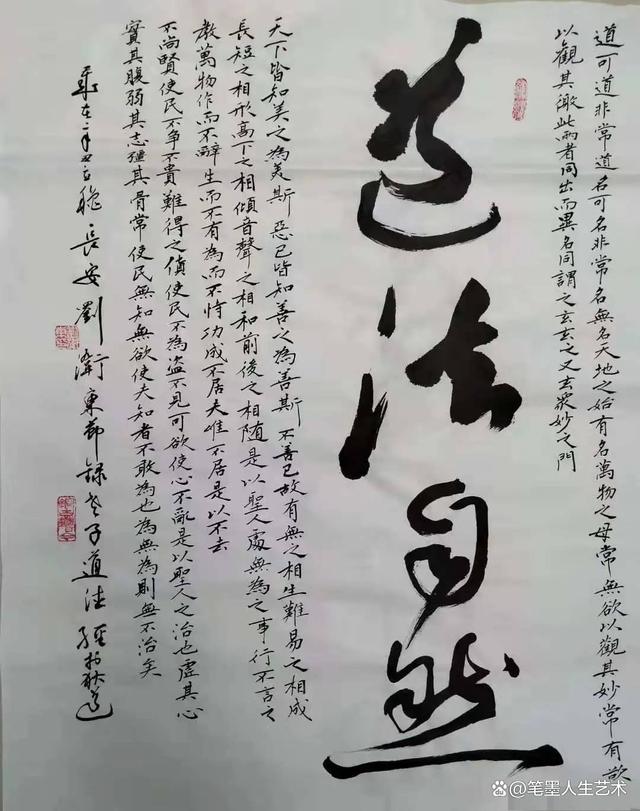 道可道非常道名可名非常名無名天地之始有名萬物之母常無欲以觀其妙常有欲
以觀其徼此兩者同出而異名同謂之玄玄之又玄衆妙之門
道法自然
天下皆知美之為美斯惡已皆知善之為善斯不善已故有無之相生難易之相成
長短之相形高下之相傾音聲之相和前後之相隨是以聖人處無為之事行不言之
教萬物作而不辭生而不有為而不恃功成不居夫唯不居是以不去
不尚賢使民不爭不貴難得之貨使民不為盜不見可欲使心不亂是以聖人之治也虛其心
實其腹弱其志彊其骨常使民無知無欲使夫知者不敢為也為無為則無不治矣
長安劉衛東節錄老子道法經於
@笔墨人生艺术